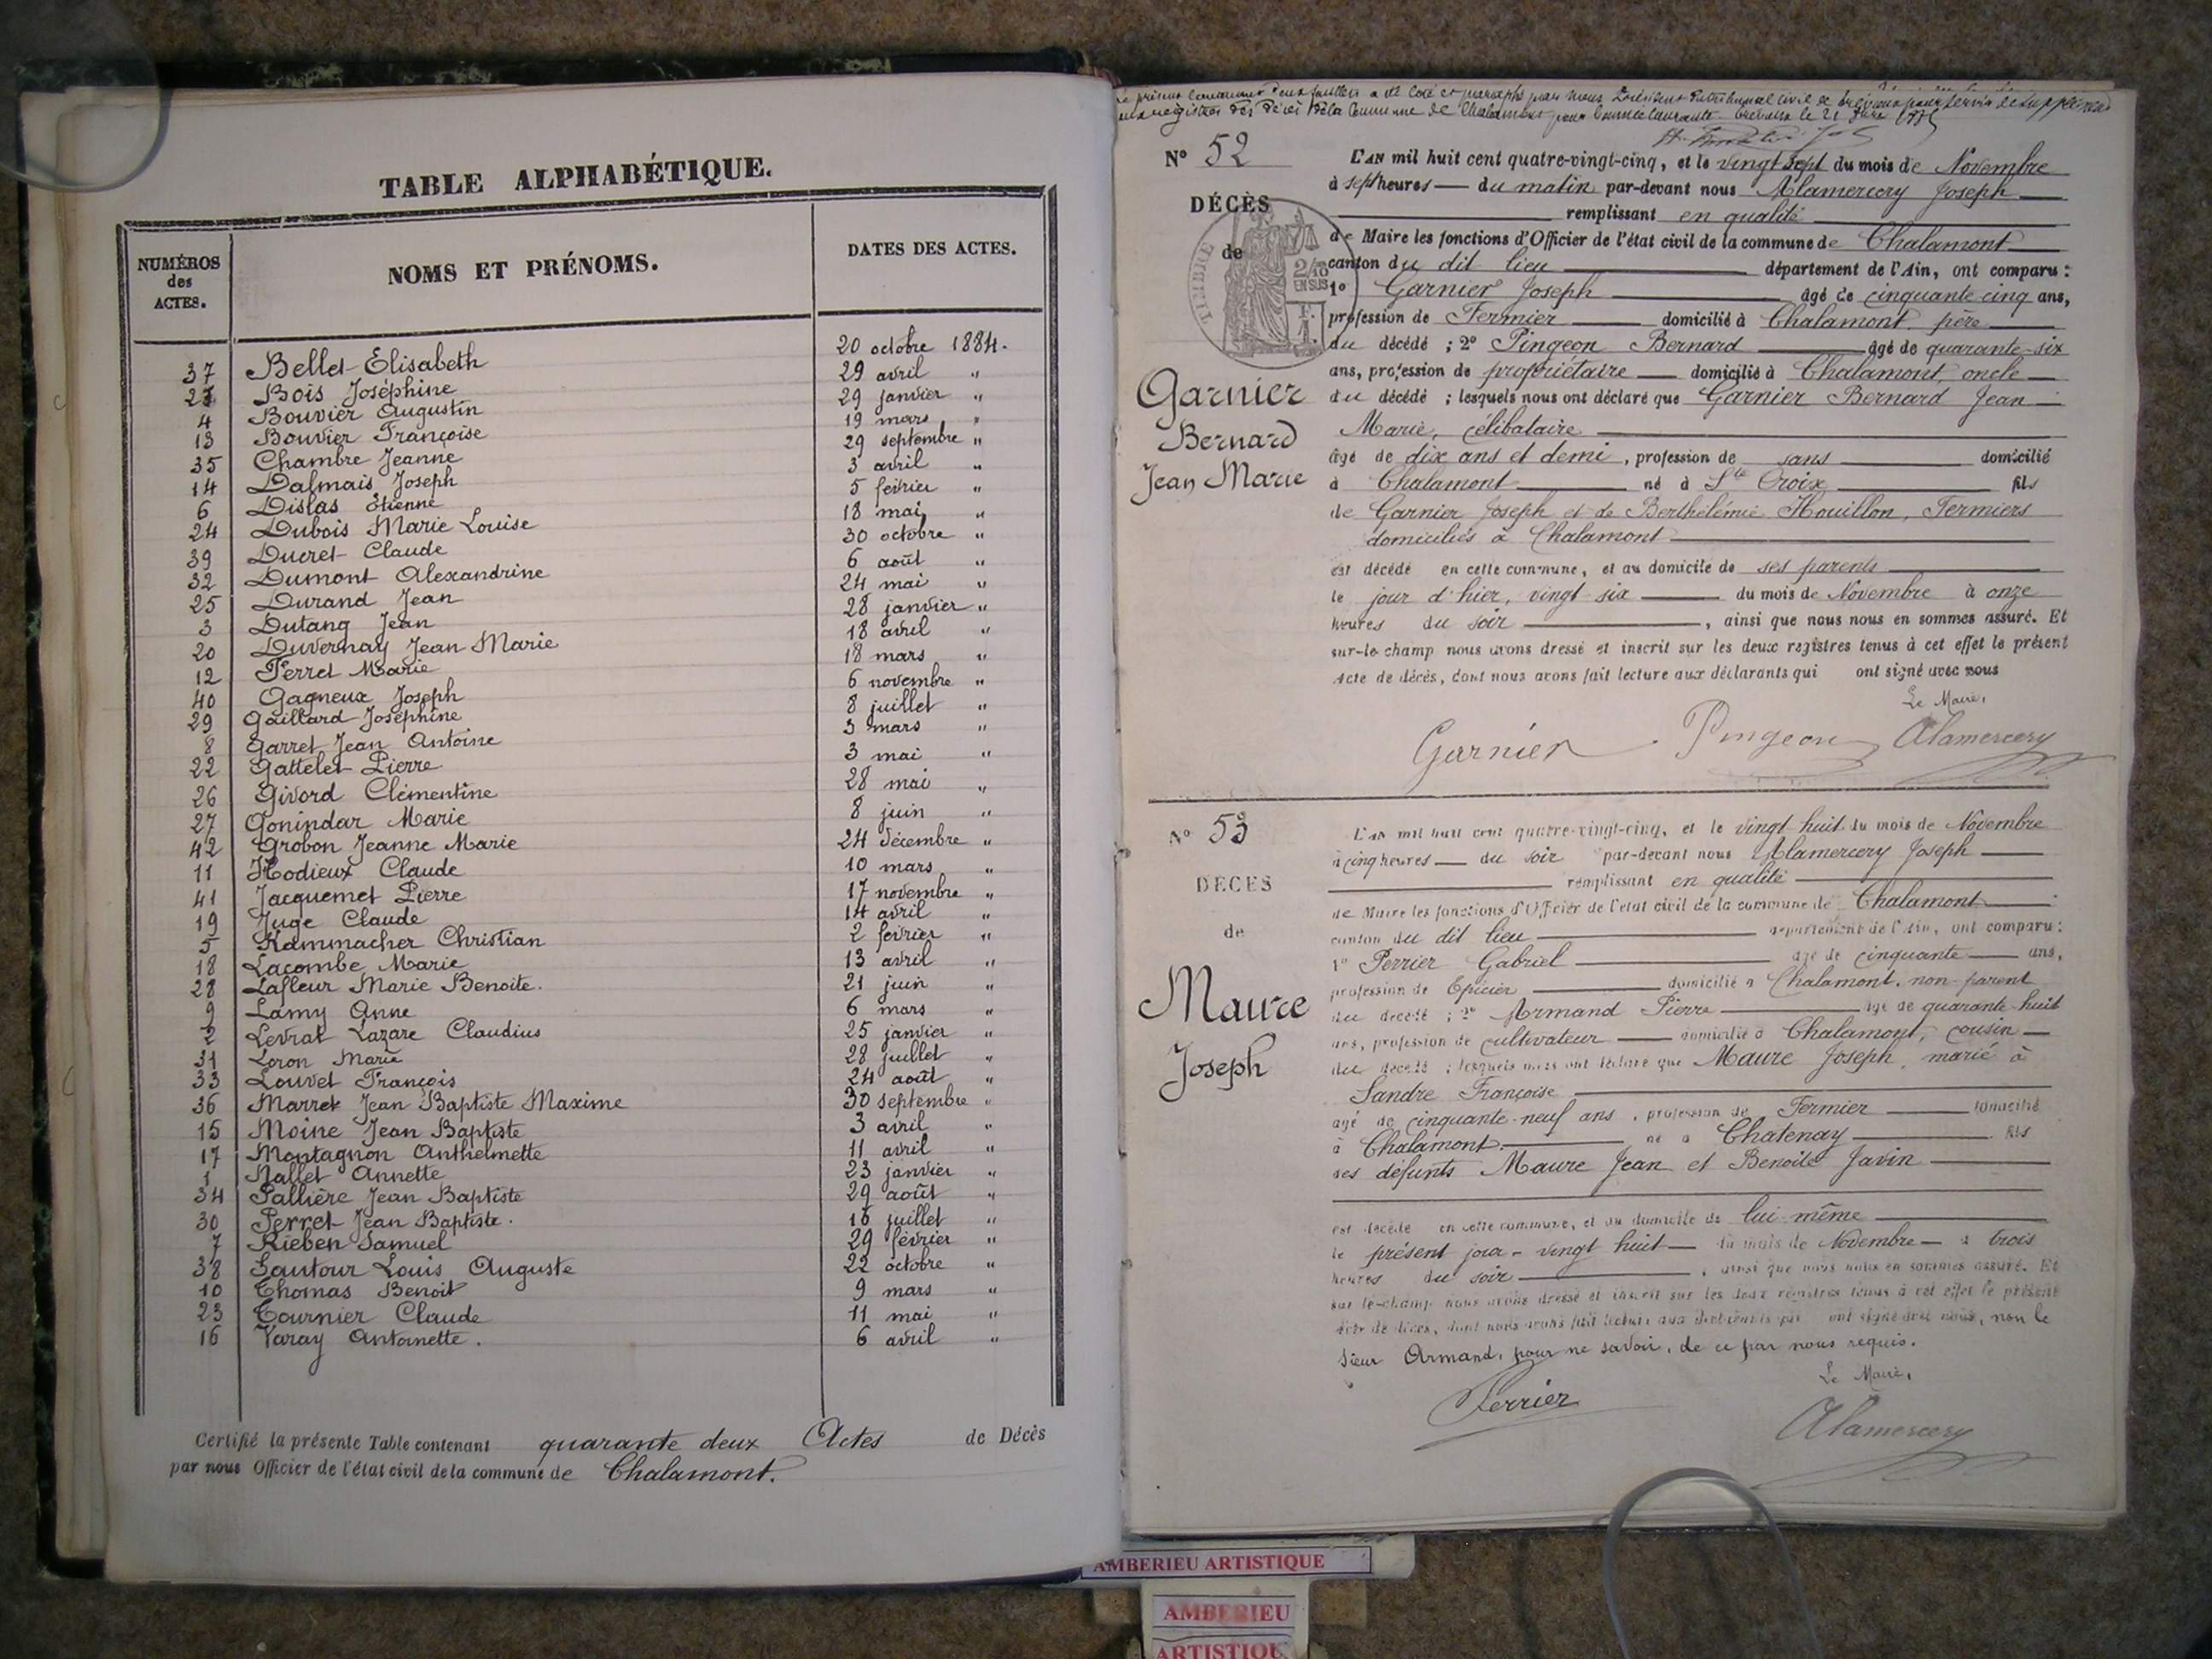 TABLE ALPHABÉTIQUE.
NUMÉROS des ACTES.
NOMS ET PRÉNOMS.
DATES DES ACTES.
37 Bellet Elisabeth 20 octobre 1884.
21 Bois Joséphine 29 avril "
4 Bouvier Augustin 29 janvier "
13 Bouvier Françoise 19 mars "
35 Chambre Jeanne 29 septembre "
14 Dalmais Joseph 3 avril "
6 Dislas Etienne 5 février "
24 Dubois Marie Louise 18 mai "
39 Ducret Claude 30 octobre "
32 Dumont Alexandrine 6 août "
25 Durand Jean 24 mai "
3 Dutang Jean 28 janvier "
20 Duvernay Jean Marie 18 avril "
12 Ferret Marie 18 mars "
40 Gagneux Joseph 6 novembre "
29 Gaillard Joséphine 8 juillet "
8 Garret Jean Antoine 3 mars "
22 Gattelet Pierre 3 mai "
26 Givord Clémentine 28 mai "
27 Gonindar Marie 8 juin "
42 Grobon Jeanne Marie 24 décembre "
11 Hodieux Claude 10 mars "
41 Jacquemet Pierre 17 novembre "
19 Juge Claude 14 avril "
5 Kammacher Christian 2 février "
18 Lacombe Marie 13 avril "
28 Lafleur Marie Benoite. 21 juin "
9 Lamy Anne 6 mars "
2 Levrat Lazare Claudius 25 janvier "
31 Loron Marie 28 juillet "
33 Louvet François 24 août "
36 Marret Jean Baptiste Maxime 30 septembre "
15 Moine Jean Baptiste 3 avril "
17 Montagnon Anthelmette 11 avril "
1 Nallet Annette 23 janvier "
34 Pallière Jean Baptiste 29 août "
30 Perret Jean Baptiste. 16 juillet "
7 Rieben Samuel 29 février "
38 Sautour Louis Auguste 22 octobre "
10 Thomas Benoit 9 mars "
23 Tournier Claude 11 mai "
16 Varay Antoinette. 6 avril "
Certifié la présente Table contenant quarante deux Actes de Décès
par nous Officier de l'état civil de la commune de Chalamont.
N° 52
DÉCÈS
de
TIMBRE
2/10 EN SUS
Garnier
Bernard
Jean Marie
L'AN mil huit cent quatre-vingt-cinq, et le vingt sept du mois de Novembre
à sept heures du matin par-devant nous Alamercery Joseph
remplissant en qualité
de Maire les fonctions d'Officier de l'état civil de la commune de Chalamont
canton du dit lieu département de l'Ain, ont comparu :
1° Garnier Joseph âgé de cinquante cinq ans,
profession de Fermier domicilié à Chalamont, père
du décédé ; 2° Pingeon Bernard âgé de quarante-six
ans, profession de propriétaire domicilié à Chalamont, oncle
du décédé ; lesquels nous ont déclaré que Garnier Bernard Jean
Marie, célibataire
âgé de dix ans et demi, profession de sans domicilié
à Chalamont né à Ste Croix fils
de Garnier Joseph et de Berthélémie Houillon, Fermiers
domiciliés à Chalamont
est décédé en cette commune, et au domicile de ses parents
le jour d'hier, vingt six du mois de Novembre à onze
heures du soir, ainsi que nous nous en sommes assuré. Et
sur-le-champ nous avons dressé et inscrit sur les deux registres tenus à cet effet le présent
Acte de décès, dont nous avons fait lecture aux déclarants qui ont signé avec nous
Le Maire,
Garnier Pingeon Alamercery
N° 53
DÉCÈS
de
Maure
Joseph
L'an mil huit cent quatre-vingt-cinq, et le vingt huit du mois de Novembre
à cinq heures du soir par-devant nous Alamercery Joseph
remplissant en qualité
de Maire les fonctions d'Officier de l'état civil de la commune de Chalamont
canton du dit lieu département de l'Ain, ont comparu :
1° Perrier Gabriel âgé de cinquante ans,
profession de Epicier domicilié à Chalamont, non parent
du décédé ; 2° Armand Pierre âgé de quarante-huit
ans, profession de cultivateur domicilié à Chalamont, cousin
du décédé ; lesquels nous ont déclaré que Maure Joseph, marié à
Sandre Françoise
âgé de cinquante-neuf ans, profession de Fermier domicilié
à Chalamont. né à Chatenay fils
des défunts Maure Jean et Benoite Javin
est décédé en cette commune, et au domicile de lui-même
le présent jour - vingt huit du mois de Novembre à trois
heures du soir, ainsi que nous nous en sommes assuré. Et
sur-le-champ nous avons dressé et inscrit sur les deux registres tenus à cet effet le présent
Acte de décès, dont nous avons fait lecture aux déclarants qui ont signé avec nous, non le
sieur Armand, pour ne savoir, de ce par nous requis.
Le Maire,
Perrier
Alamercery
AMBERIEU ARTISTIQUE
AMBERIEU
ARTISTIQUE